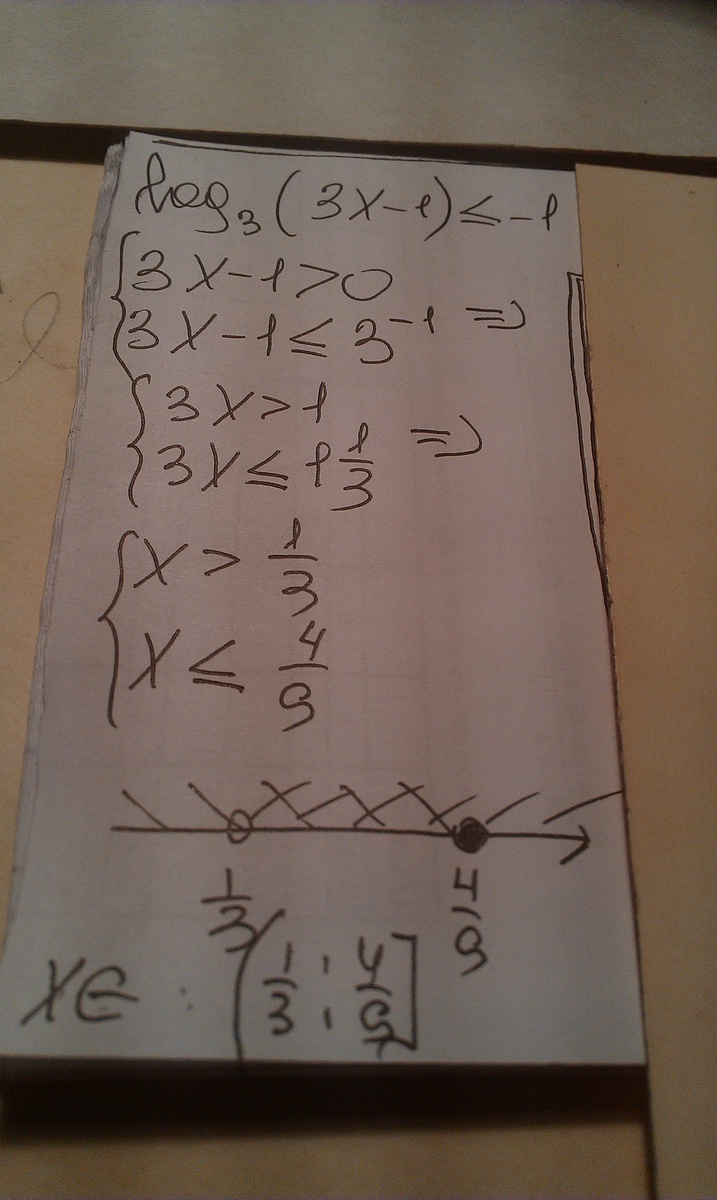 log₃(3x-1)≤-1
{3x-1>0
{3x-1≤3⁻¹ ⇒
{3x>1
{3x≤1 1/3 ⇒
{x > 1/3
{x ≤ 4/9
1/3 4/9
x∈ : (1/3 ; 4/9]